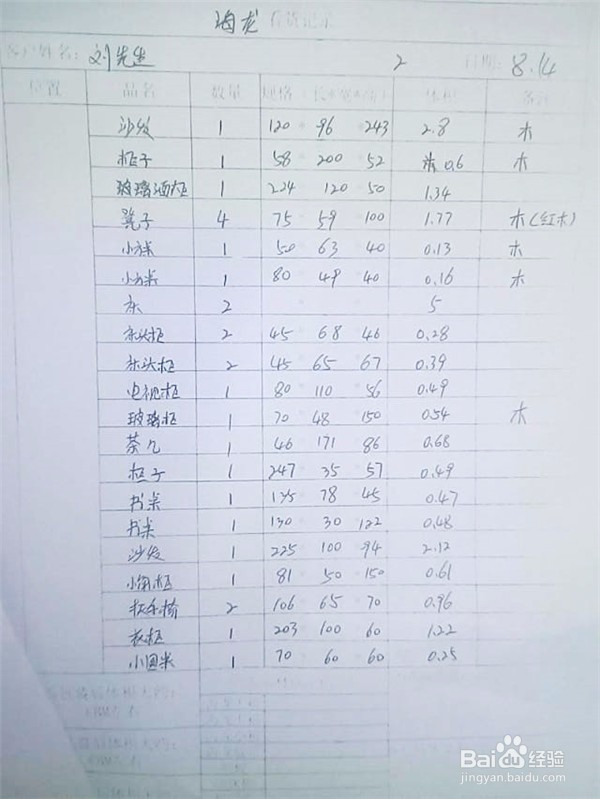 海龙 看货记录
客户姓名: 刘先生 2 日期: 8.14
位置 品名 数量 规格(长*宽*高) 体积 备注
沙发 1 120 96 243 2.8 木
柜子 1 58 200 52 0.6 木
玻璃酒柜 1 224 120 50 1.34
凳子 4 75 59 100 1.77 木(红木)
1 50 63 40 0.13 木
1 80 49 40 0.16 木
床 2 5
床头柜 2 45 68 46 0.28
床头柜 2 45 65 67 0.39
电视柜 1 80 110 56 0.49
玻璃柜 1 70 48 150 0.54 木
茶几 1 46 171 86 0.68
柜子 1 247 35 57 0.49
书桌 1 135 78 45 0.47
书桌 1 130 30 122 0.48
沙发 1 225 100 94 2.12
小角柜 1 81 50 150 0.61
2 106 65 70 0.96
衣柜 1 203 100 60 1.22
小圆桌 1 70 60 60 0.25
Baidu经验
jingyan.baidu.com